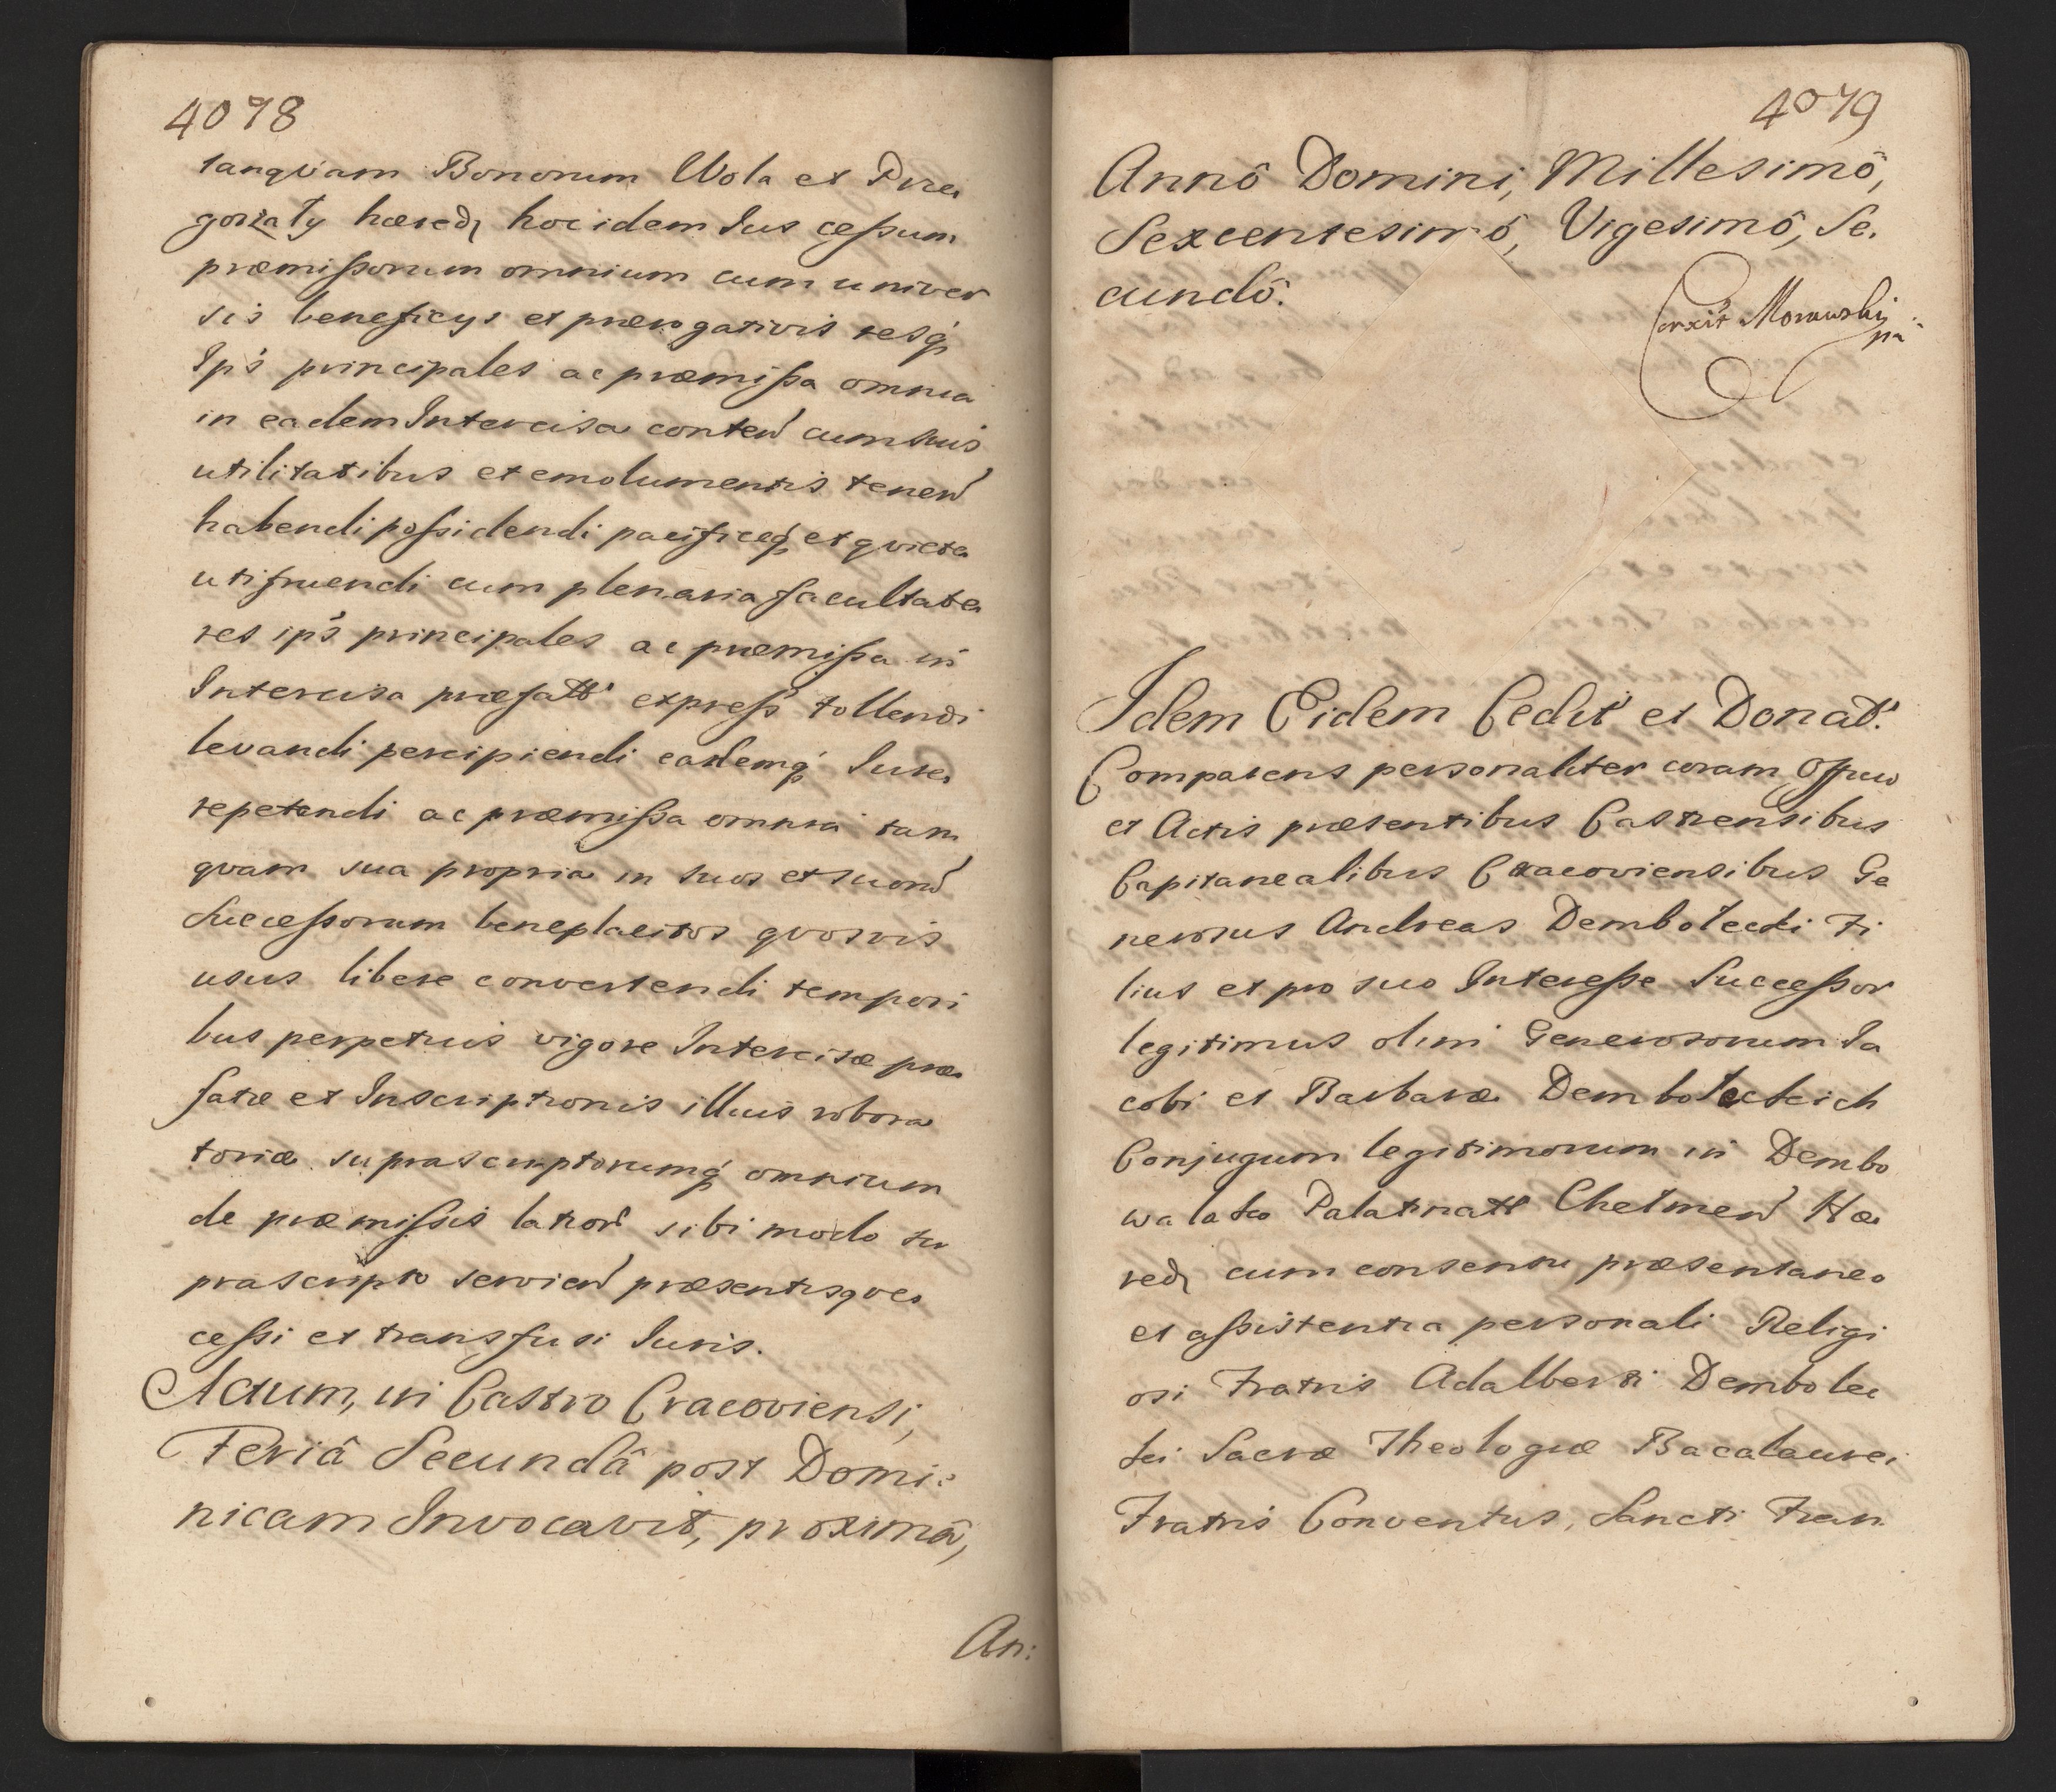 4078
tanqvam Bonorum Wola et Prze
gorzały hæredj hoc idem Jus cessum
præmissorum omnium cum univer
sis beneficys et prærogativis resq́
Ips̃ principales ac præmissa omnia
in eadem Intercisa conten̄ cum suis
utilitatibus et emolumentis tenen̄
habendi possidendi pacificeq́ et qviete
utifruendi cum plenaria facultate
res ips̃ principales ac præmissa in
Intercisa præfatt̃ express̃ tollendi
levandi percipiendi eademq́ Jure
repetendi ac præmissa omnia tam
qvam sua propria in suos et suor̃
Successorum beneplacitos qvosvis
usus libere convertendi tempori
bus perpetuis vigore Intercisæ præ
fatæ et Inscriptionis illius robora
toriæ suprascriptorumq́ omnium
de præmissis lator̃ sibi modo su
prascripto servien̄ præsentisqve
cessi et transfusi Juris.
Actum, in Castro Cracoviensi,
Feriâ Secundâ post Domi:
nicam Invocavit, proximâ,
An:
4079
Annô Domini, Millesimô,
Sexcentesimô, Vigesimô, Se.
cundô.
Corxit Morawski
pa
Idem Eidem Cedit et Donat.
Comparens personaliter coram Offici͠o
et Actis præsentibus Castrensibus
Capitanealibus Cracoviensibus Ge
nerosus Andreas Dembołecki Fi
lius et pro suo Interesse Successor
legitimus olim Generosorum Ja
cobi et Barbaræ Dembołeckich
Conjugum legitimorum in Dembo
wa łąka Palatinatt̃ Chełmen̄ Hæ
redj cum consensu præsentaneo
et assistentia personali Religi
osi Fratris Adalberti Dembołec
ki Sacræ Theologiæ Bacalaurei
Fratris Conventus, Sancti Fran